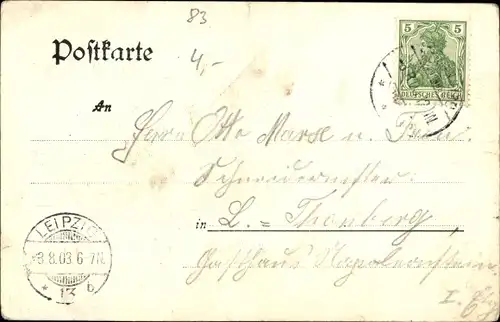 83
4,-
Postkarte
5 5
DEUTSCHES REICH
An
Herrn Otto Marx u. Frau
Schneidermeister
in L. = Thonberg,
Gasthaus Napoleonstein
LEIPZIG
-3.8.03 6-7N.
* 13 b
I.